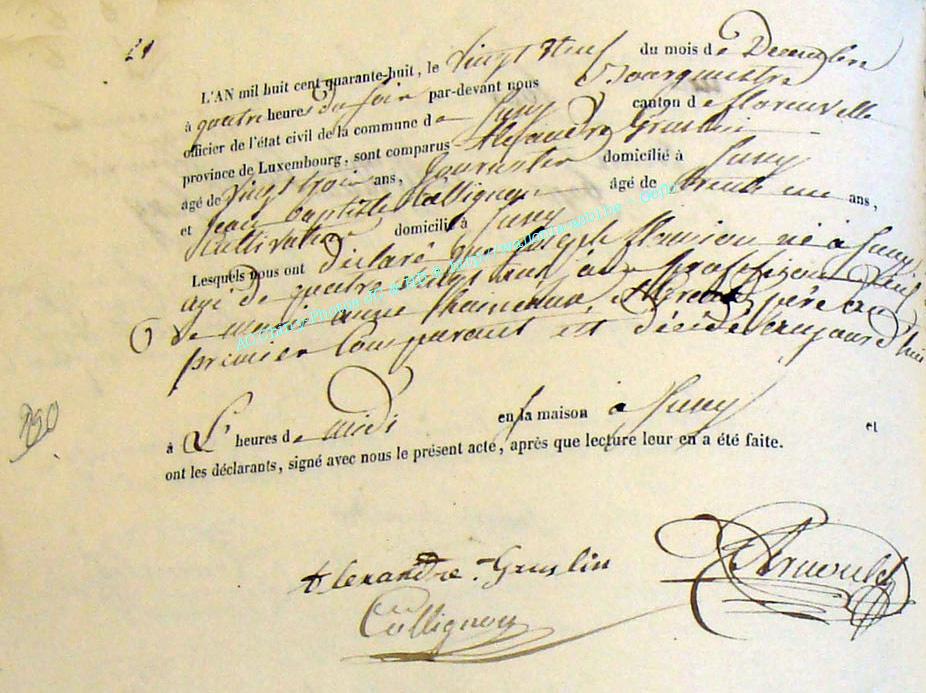 21
L'AN mil huit cent quarante-huit, le vingt neuf du mois de Decembre
à quatre heures du soir par-devant nous Bourguestre
officier de l'état civil de la commune de Juny canton de florenville
province de Luxembourg, sont comparus Alexandre Gruslin
agé de vingt trois ans, domicilié à Juny
et Jean Baptiste Collignon âgé de trente un ans,
Cultivateur domicilié à Juny
Lesquels nous ont déclaré que joseph né à Juny
agé de quatre vingt ans veuf
de anne et Grand père du
premier Comparant est décédé aujourd'hui
à L' heures de midi en sa maison à Juny et
ont les déclarants, signé avec nous le présent acte, après que lecture leur en a été faite.
Alexandre Gruslin
Arnould
Collignon